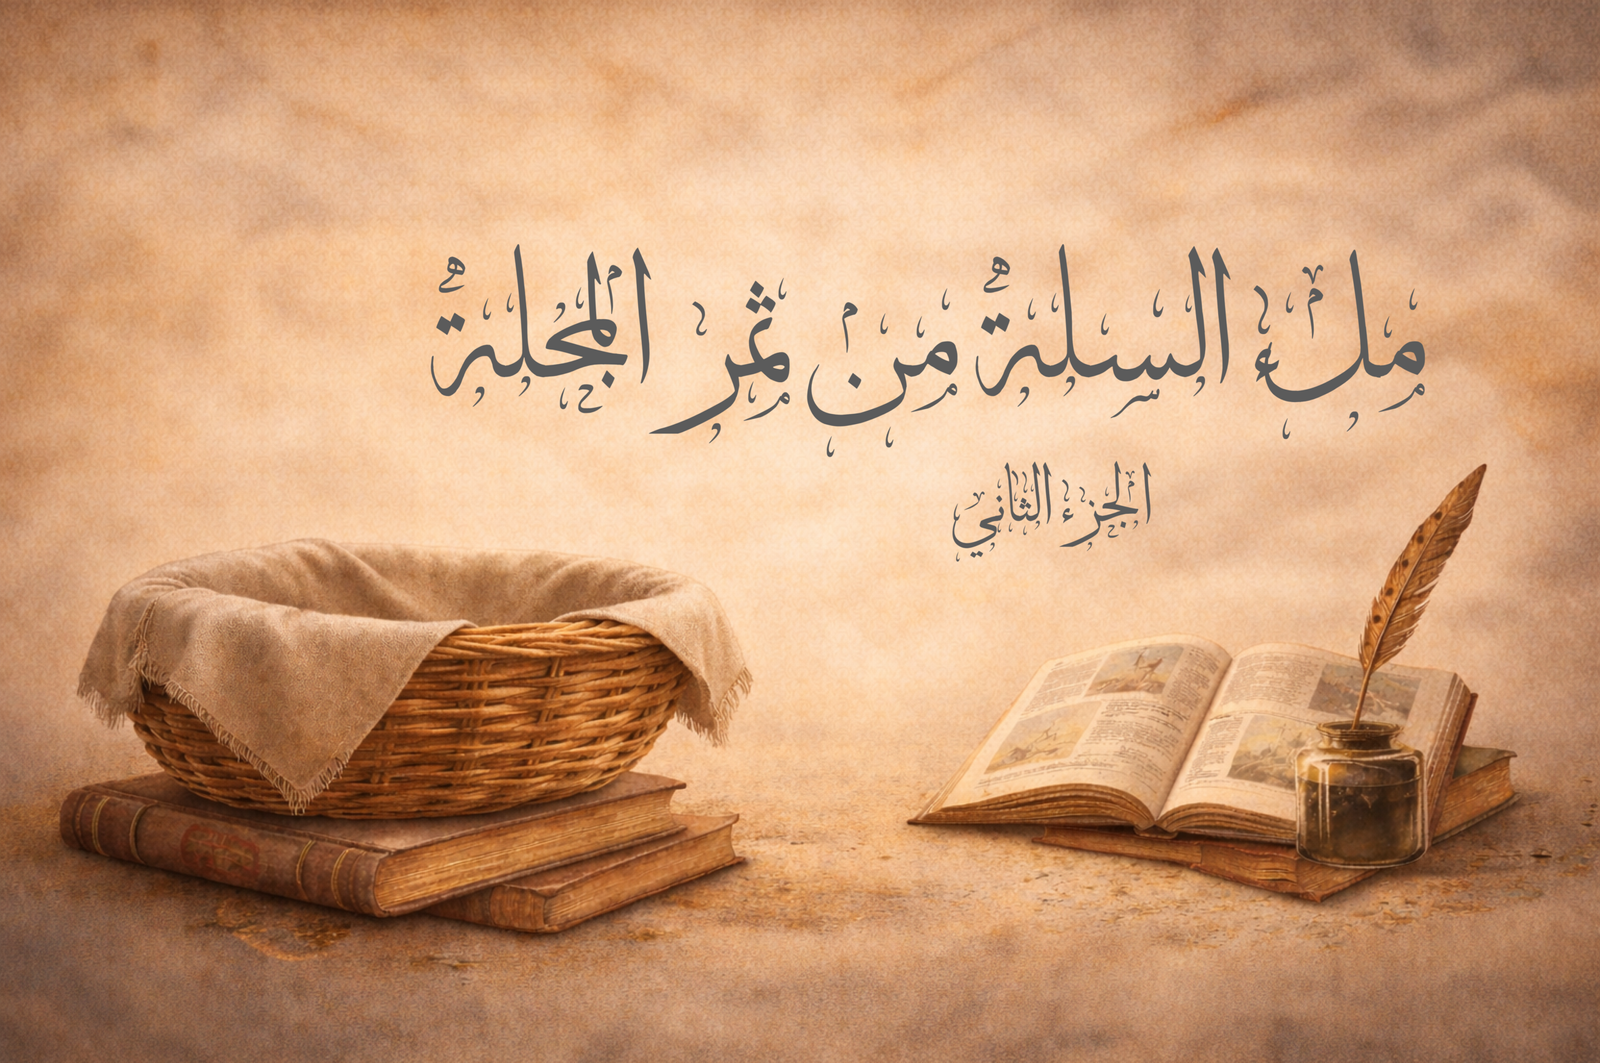 ملء السلة من ثمر المجلة
الجزء الثاني